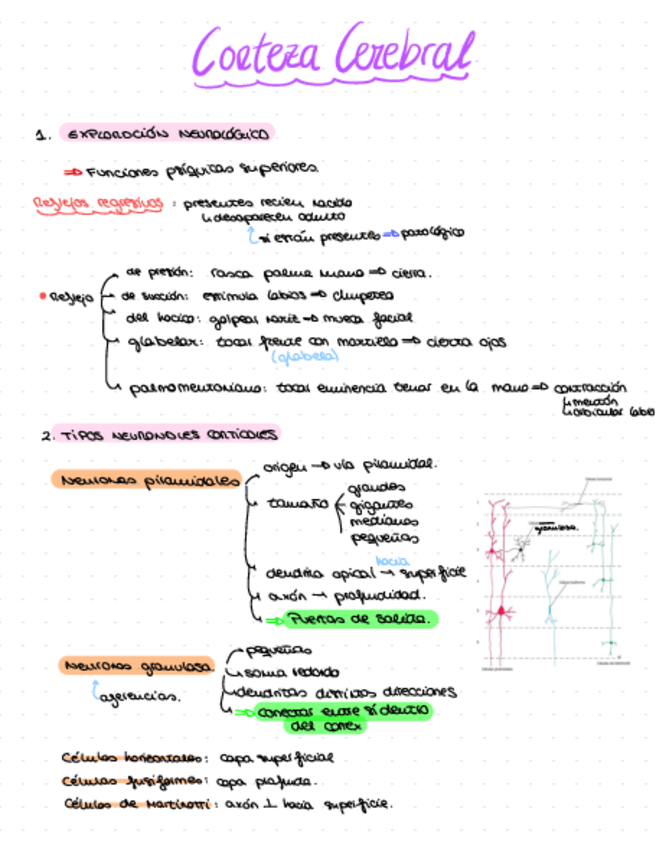 Corteza Cerebral
1. EXPLORACIÓN NEUROLÓGICO
⇒ Funciones psíquicas superiores.
Reflejos regresivos: presentes recien nacido
↳ desaparecen adulto
↳ si están presentes ⇒ patológico
• Reflejo
de presión: rasca palma mano ⇒ cierra.
de succión: estimula labios ⇒ chupeteo
del hocico: golpear nariz ⇒ mueca facial
glabelar: tocar frente con martillo ⇒ cierra ojos
(glabela)
palmomentoniano: tocar eminencia tenar en la mano ⇒ contracción
↳ mentón
↳ orbicular labio
2. TIPOS NEURONALES CORTICALES
Neuronas piramidales
origen → vía piramidal.
tamaño
grandes
gigantes
medianas
pequeñas
hacia
dendrita apical → superficie
axón → profundidad.
⇒ Puertas de salida.
granulosa.
Neuronas granulosa.
aferencias.
pequeñas
soma redondo
dendritas distintas direcciones
⇒ conectar entre sí dentro
del cortex
Células horizontales: capa superficial
Células fusiformes: capa profunda.
Células de Martinotti: axón ⊥ hacia superficie.